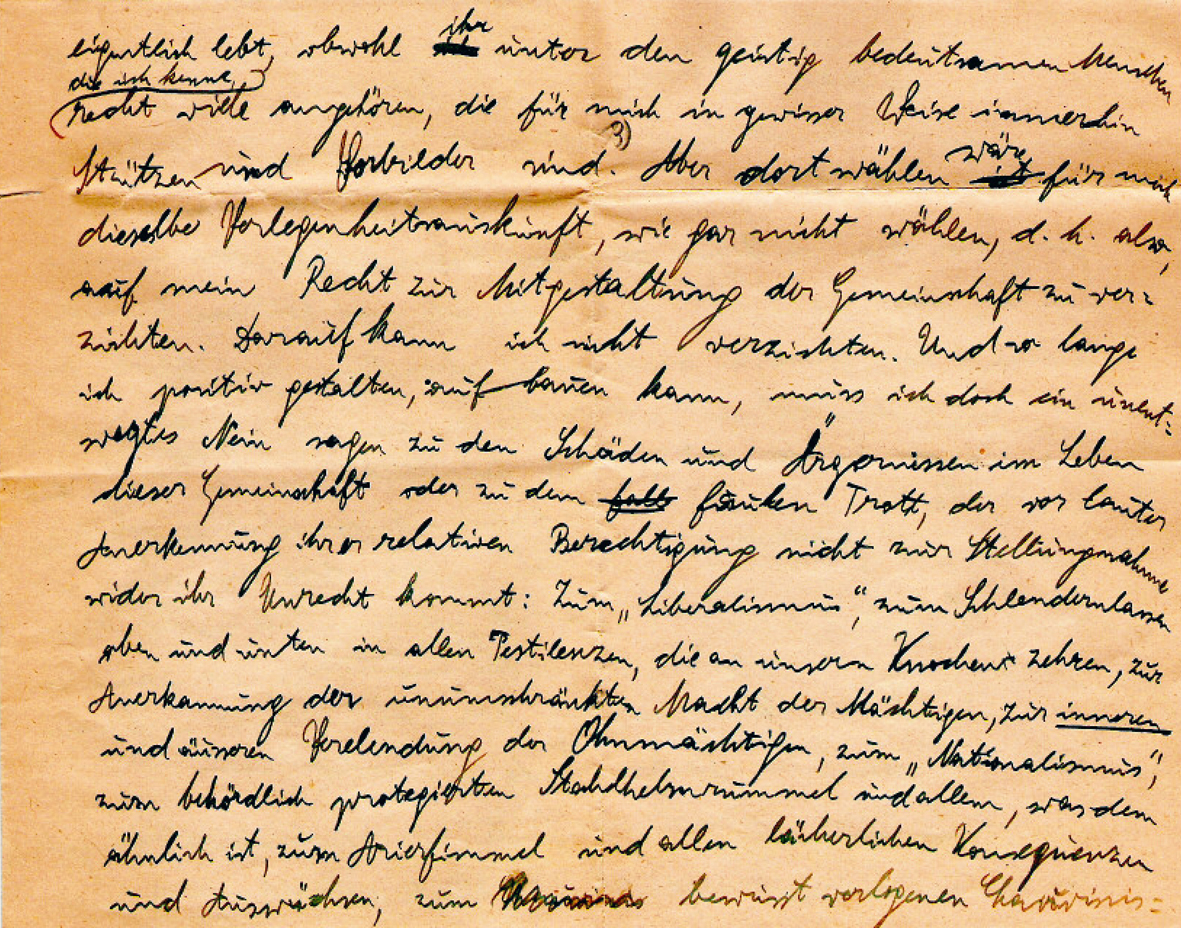 eigentlich lebt, obwohl ihr unter den geistig bedeutsamen Menschen
die ich kenne,
recht viele angehören, die für mich in gewisser Weise immerhin
3)
Stützen und Vorbilder sind. Aber dort wählen wäre für mich
dieselbe Verlegenheitsauskunft, wie gar nicht wählen, d. h. also,
auf mein Recht zur Mitgestaltung der Gemeinschaft zu ver-
zichten. Darauf kann ich nicht verzichten. Und so lange
ich positiv gestalten, aufbauen kann, muss ich doch ein unent-
wegtes Nein sagen zu den Schäden und Ärgernissen im Leben
dieser Gemeinschaft oder zu dem faulen Trott, der vor lauter
Anerkennung ihrer relativen Berechtigung nicht zur Stellungnahme
wider ihr Unrecht kommt: Zum „Liberalismus“, zum Schlendernlassen
oben und unten in allen Pestilenzen, die an unsern Knochen zehren, zur
Anerkannung der unumschränkten Macht der Mächtigen, zur inneren
und äusseren Verelendung der Ohnmächtigen, zum „Nationalismus“,
zum behördlich protegierten Stahlhelmrummel und allem, was dem
ähnlich ist, zum Arierfimmel und allen lächerlichen Konsequenzen
und Auswüchsen, zum bewusst verlogenen Chauvinis-